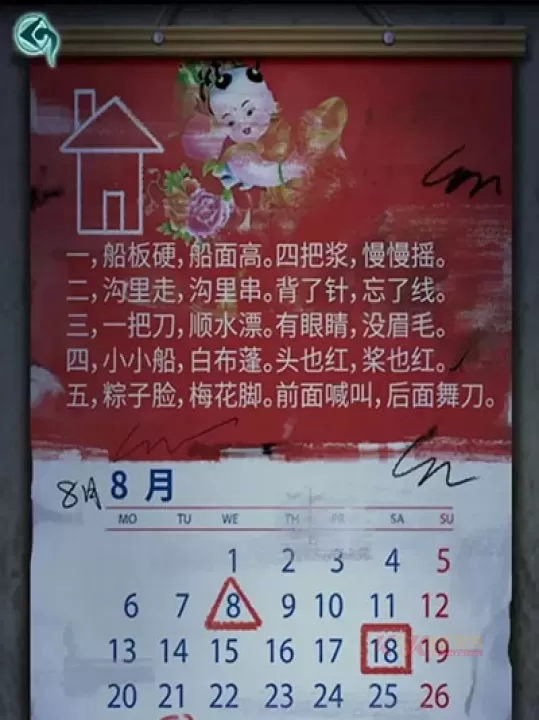 一，船板硬，船面高。四把浆，慢慢摇。
二，沟里走，沟里串。背了针，忘了线。
三，一把刀，顺水漂。有眼睛，没眉毛。
四，小小船，白布蓬。头也红，桨也红。
五，粽子脸，梅花脚。前面喊叫，后面舞刀。
8月 8 月
MO TU WE TH FR SA SU
1 2 3 4 5
6 7 8 9 10 11 12
13 14 15 16 17 18 19
20 21 22 23 24 25 26